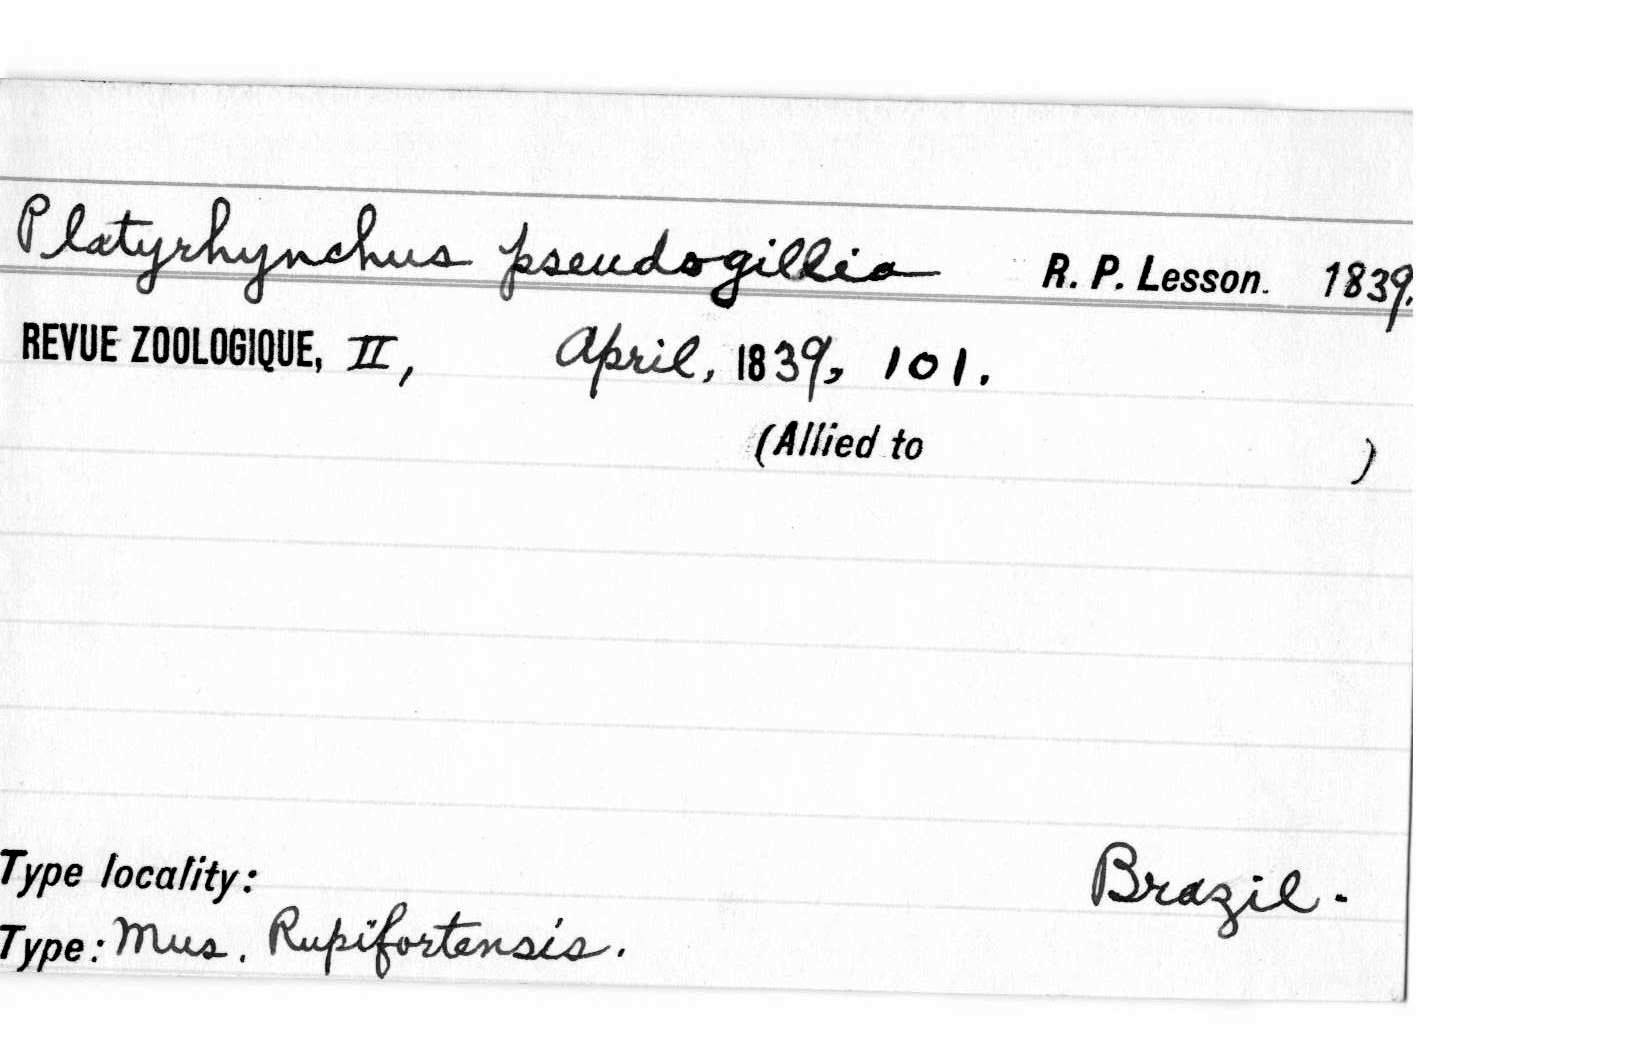 Platyrhynchus pseudogillia R. P. Lesson. 1839.
REVUE ZOOLOGIQUE, II, April, 1839, 101.
(Allied to )
Type locality: Brazil.
Type: Mus. Rupifortensis.